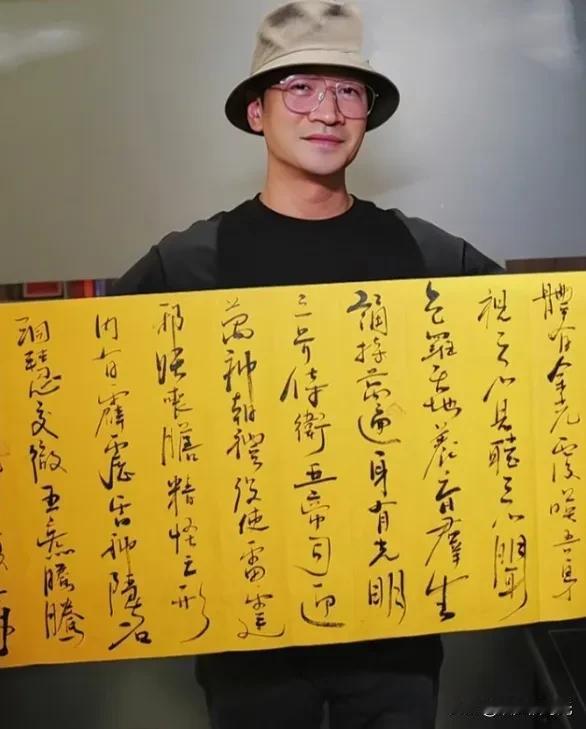 體有金光覆映吾身
視之不見聽之不聞
包羅天地養育羣生
誦持萬遍身有光明
三界侍衛五帝司迎
萬神朝禮役使雷霆
邪妖喪膽精怪亡形
内有霹靂雷神隱名
洞慧交徹五炁騰騰